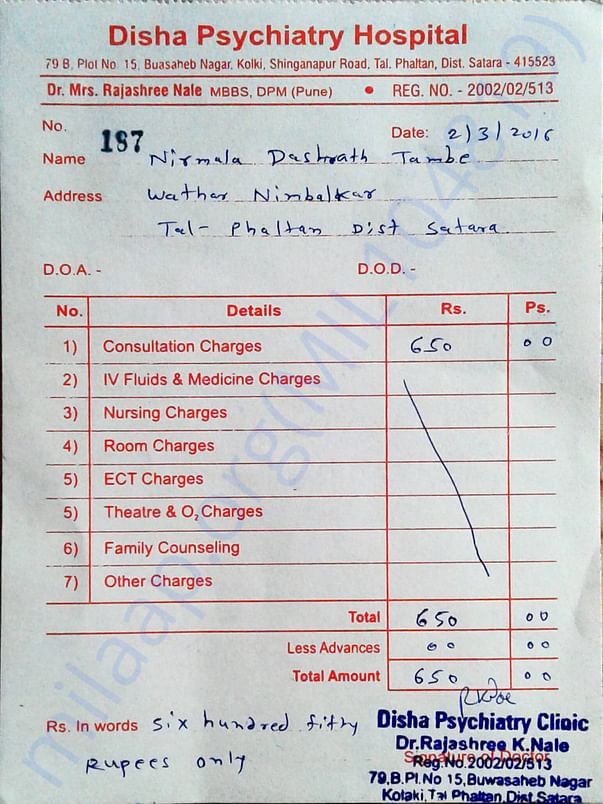 Disha Psychiatry Hospital
79 B, Plot No. 15, Buasaheb Nagar, Kolki, Shinganapur Road, Tal. Phaltan, Dist. Satara - 415523
Dr. Mrs. Rajashree Nale MBBS, DPM (Pune) • REG. NO. - 2002/02/513
No. 187 Date: 2/3/2016
Name Nirmala Dashrath Tambe
Address Wathar Nimbalkar
Tal- Phaltan Dist Satara
D.O.A. - D.O.D. -
No. Details Rs. Ps.
1) Consultation Charges 650 00
2) IV Fluids & Medicine Charges
3) Nursing Charges
4) Room Charges
5) ECT Charges
5) Theatre & O₂ Charges
6) Family Counseling
7) Other Charges
Total 650 00
Less Advances 00 00
Total Amount 650 00
Rs. In words six hundred fifty
Rupees only
Disha Psychiatry Clinic
Dr.Rajashree K.Nale
Signature of Doctor
Reg.No.2002/02/513
79,B.Pl.No 15,Buwasaheb Nagar
Kolaki,Tal Phaltan,Dist Satara
milaap.org(MIL104819)